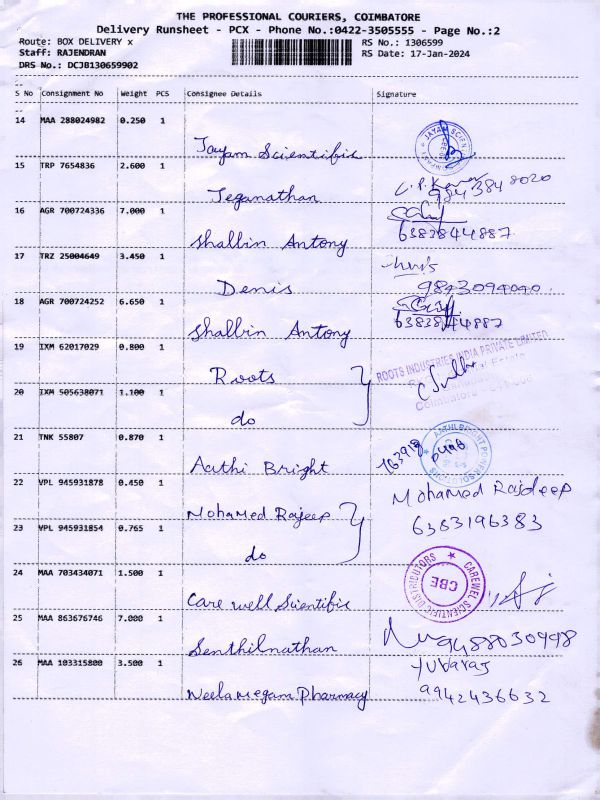 THE PROFESSIONAL COURIERS, COIMBATORE
Delivery Runsheet - PCX - Phone No.:0422-3505555 - Page No.:2
Route: BOX DELIVERY x
RS No.: 1306599
Staff: RAJENDRAN
RS Date: 17-Jan-2024
DRS No.: DCJB130659902
S No Consignment No Weight PCS Consignee Details Signature
14 MAA 288024982 0.250 1
Jayam Scientific
15 TRP 7654836 2.600 1
Jeganathan
16 AGR 700724336 7.000 1
Shallbin Antony 6383844887
17 TRZ 25004649 3.450 1
Denis
18 AGR 700724252 6.650 1
Shallbin Antony 6383844887
19 IXM 62017029 0.800 1
Roots
ROOTS INDUSTRIES INDIA PRIVATE LIMITED
20 IXM 505638071 1.100 1
do
21 TNK 55807 0.870 1
Aathi Bright
22 VPL 945931878 0.450 1
Mohamed Rajdeep
Mohamed Rajeep
6383196383
23 VPL 945931854 0.765 1
do
24 MAA 703434071 1.500 1
Care well Scientific
CAREWEL SCIENTIFIC DISTRIBUTORS
CBE
25 MAA 863676746 7.000 1
Senthilnathan 9488030998
26 MAA 103315800 3.500 1
Yubaraj
Neelamegam Pharmacy 9942436632